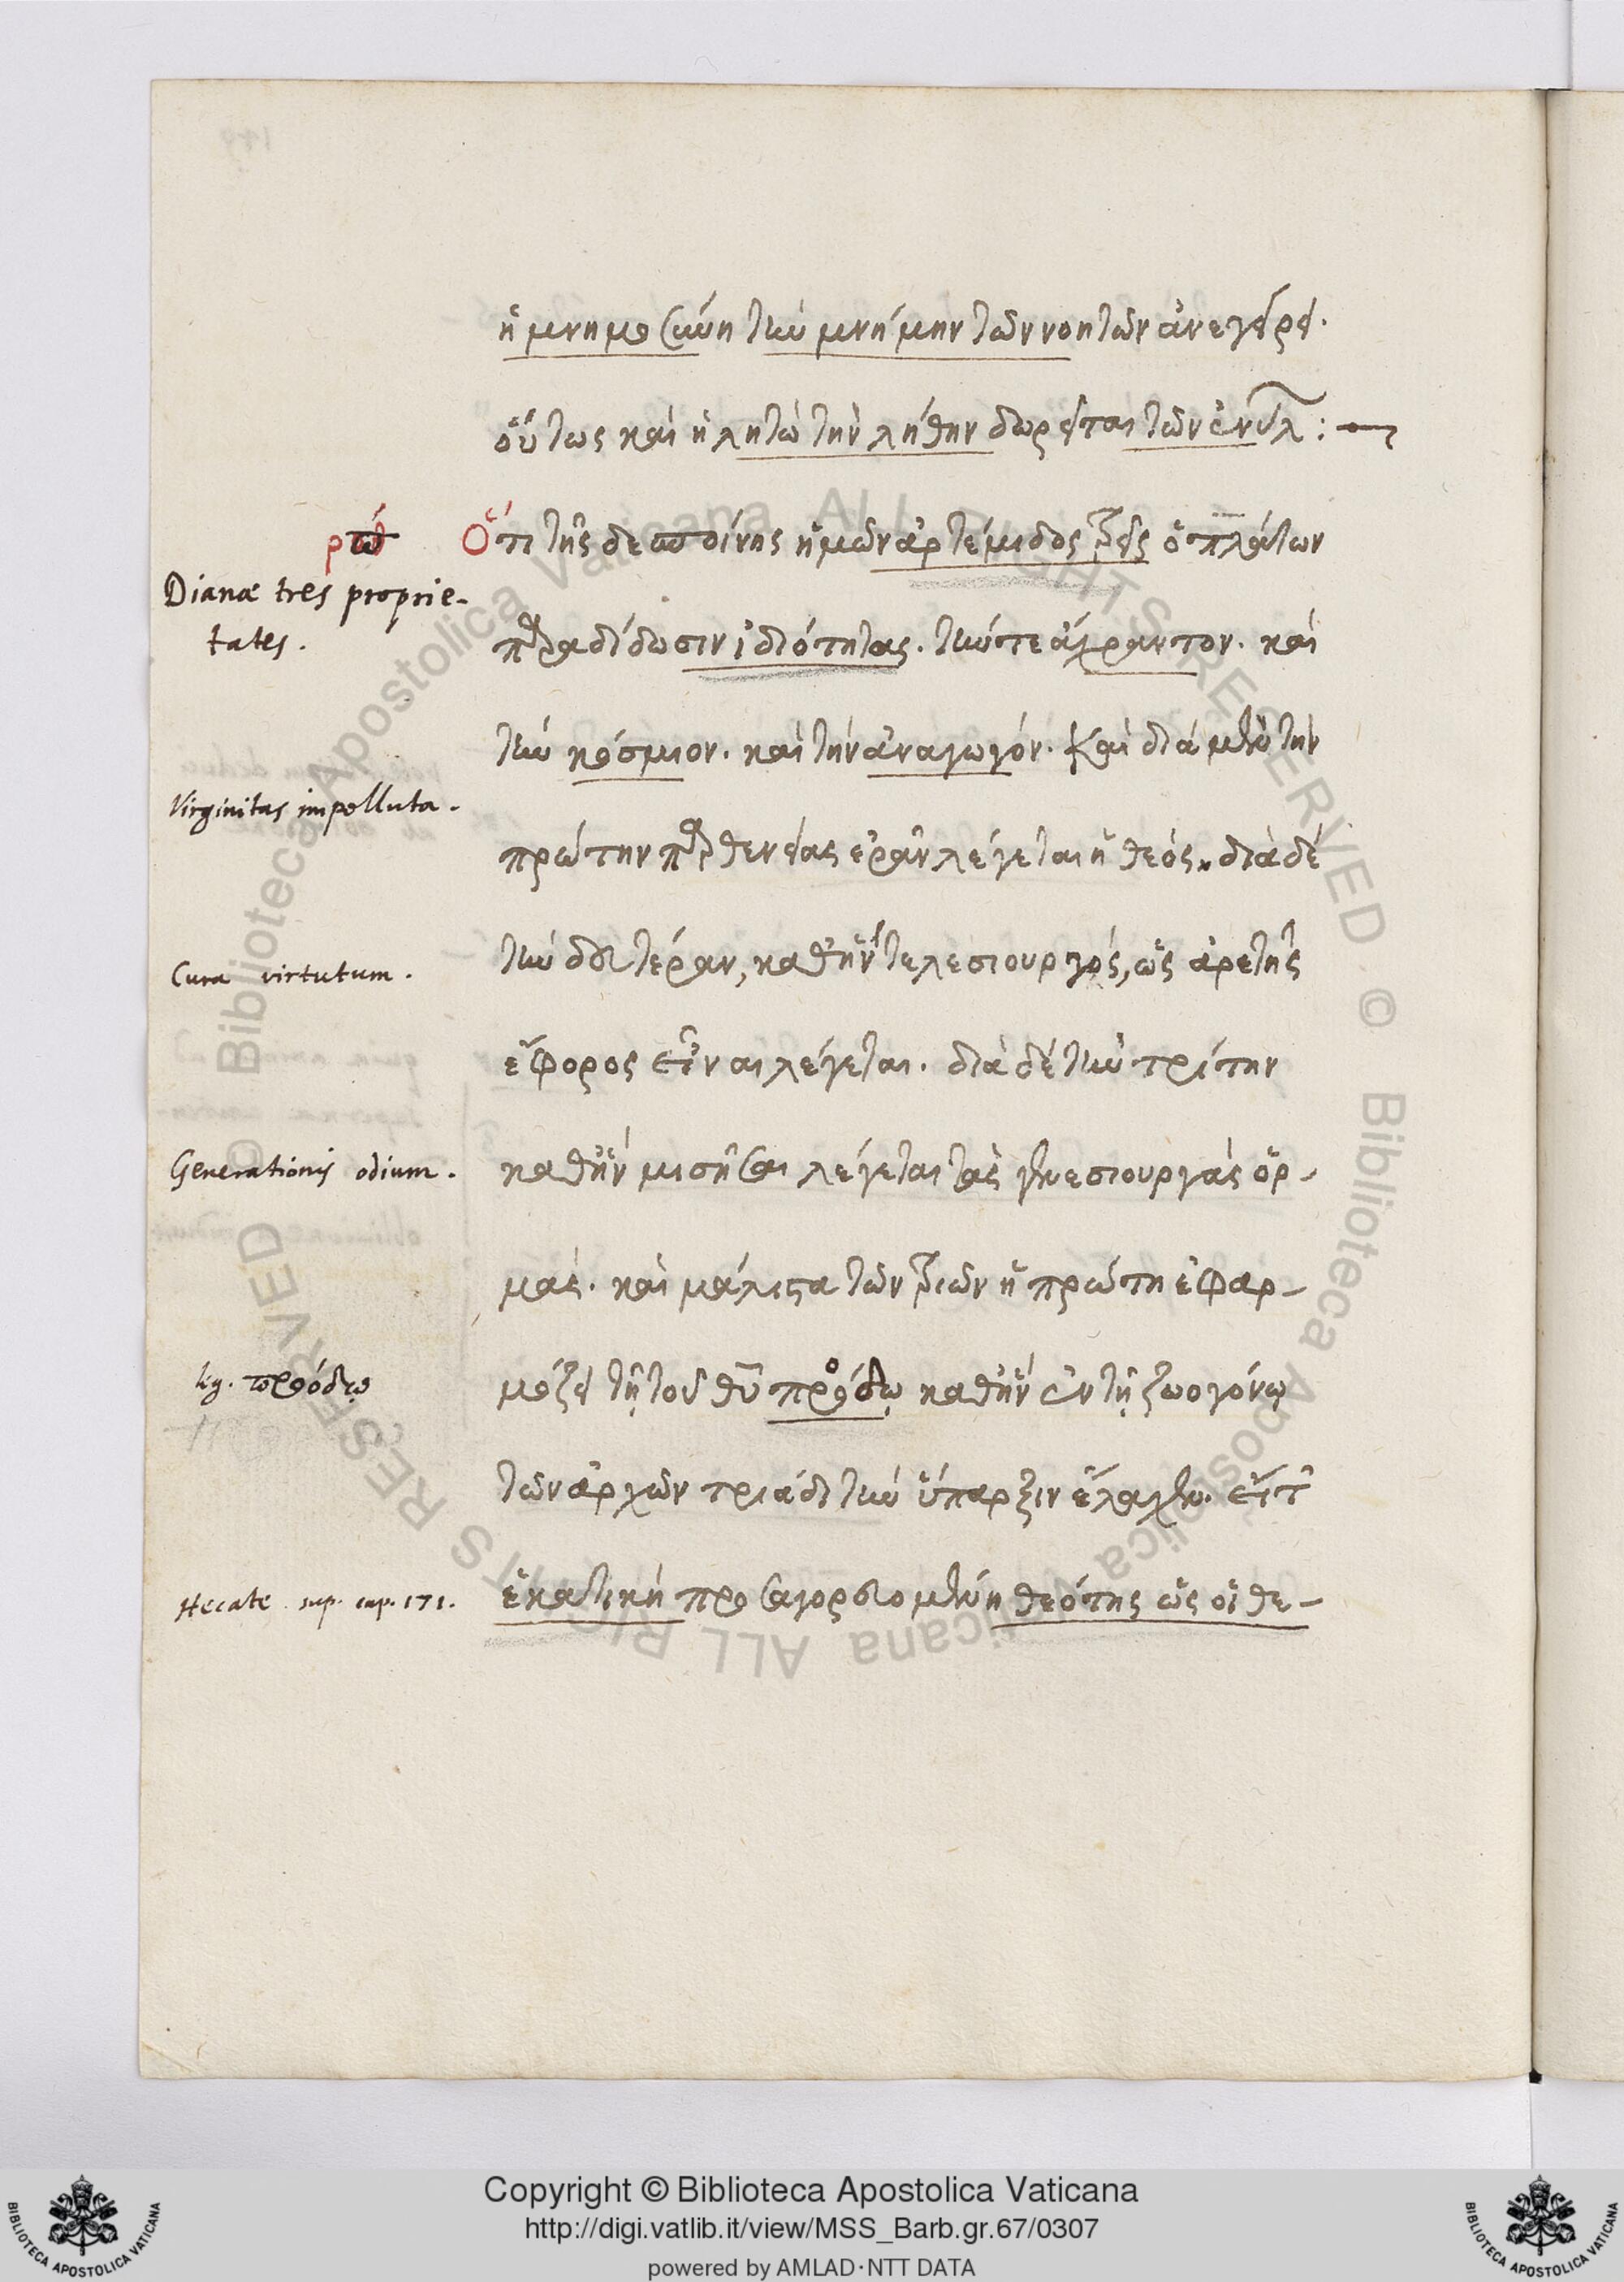 ἡ μνημοσύνη τὴν μνήμην τῶν νοητῶν ἀνεγείρει.
οὕτως καὶ ἡ λητὼ τὴν λήθην δωρεῖται τῶν ἐνύλ :
Ὅτι τῆς δεσποίνης ἡμῶν ἀρτέμιδος τρεῖς ὁ πλάτων
Dianæ tres proprie-
tates.
παραδίδωσιν ἰδιότητας. τήν τε ἄχραντον. καὶ
τὴν κόσμιον. καὶ τὴν ἀναγωγόν. καὶ διὰ μὲν τὴν
Virginitas impolluta.
πρώτην παρθενείας ἐρᾶν λέγεται ἡ θεός. διὰ δὲ
Cura virtutum.
τὴν δευτέραν, καθ' ἣν τελεσιουργός, ὡς ἀρετῆς
ἔφορος εἶναι λέγεται. διὰ δὲ τὴν τρίτην
Generationis odium.
καθ' ἣν μισῆσαι λέγεται τὰς γενεσιουργὰς ὁρ-
μάς. καὶ μάλιστα τῶν τριῶν ἡ πρώτη ἐφαρ-
lg. προόδῳ
μόζει τῇ τοῦ θυ προόδῳ καθ' ἣν ἐν τῇ ζωογόνῳ
τῶν ἀρχῶν τριάδι τὴν ὕπαρξιν ἔλαχεν. εἴτ
Hecate sup. cap. 171.
ἑκατικὴ προσαγορευομένη θεότης ὡς οἱ θε-
© Biblioteca Apostolica Vaticana ALL RIGHTS RESERVED © Biblioteca Apostolica Vaticana ALL RIGHTS RESERVED
BIBLIOTECA APOSTOLICA VATICANA
Copyright © Biblioteca Apostolica Vaticana
http://digi.vatlib.it/view/MSS_Barb.gr.67/0307
powered by AMLAD·NTT DATA
BIBLIOTECA APOSTOLICA VATICANA